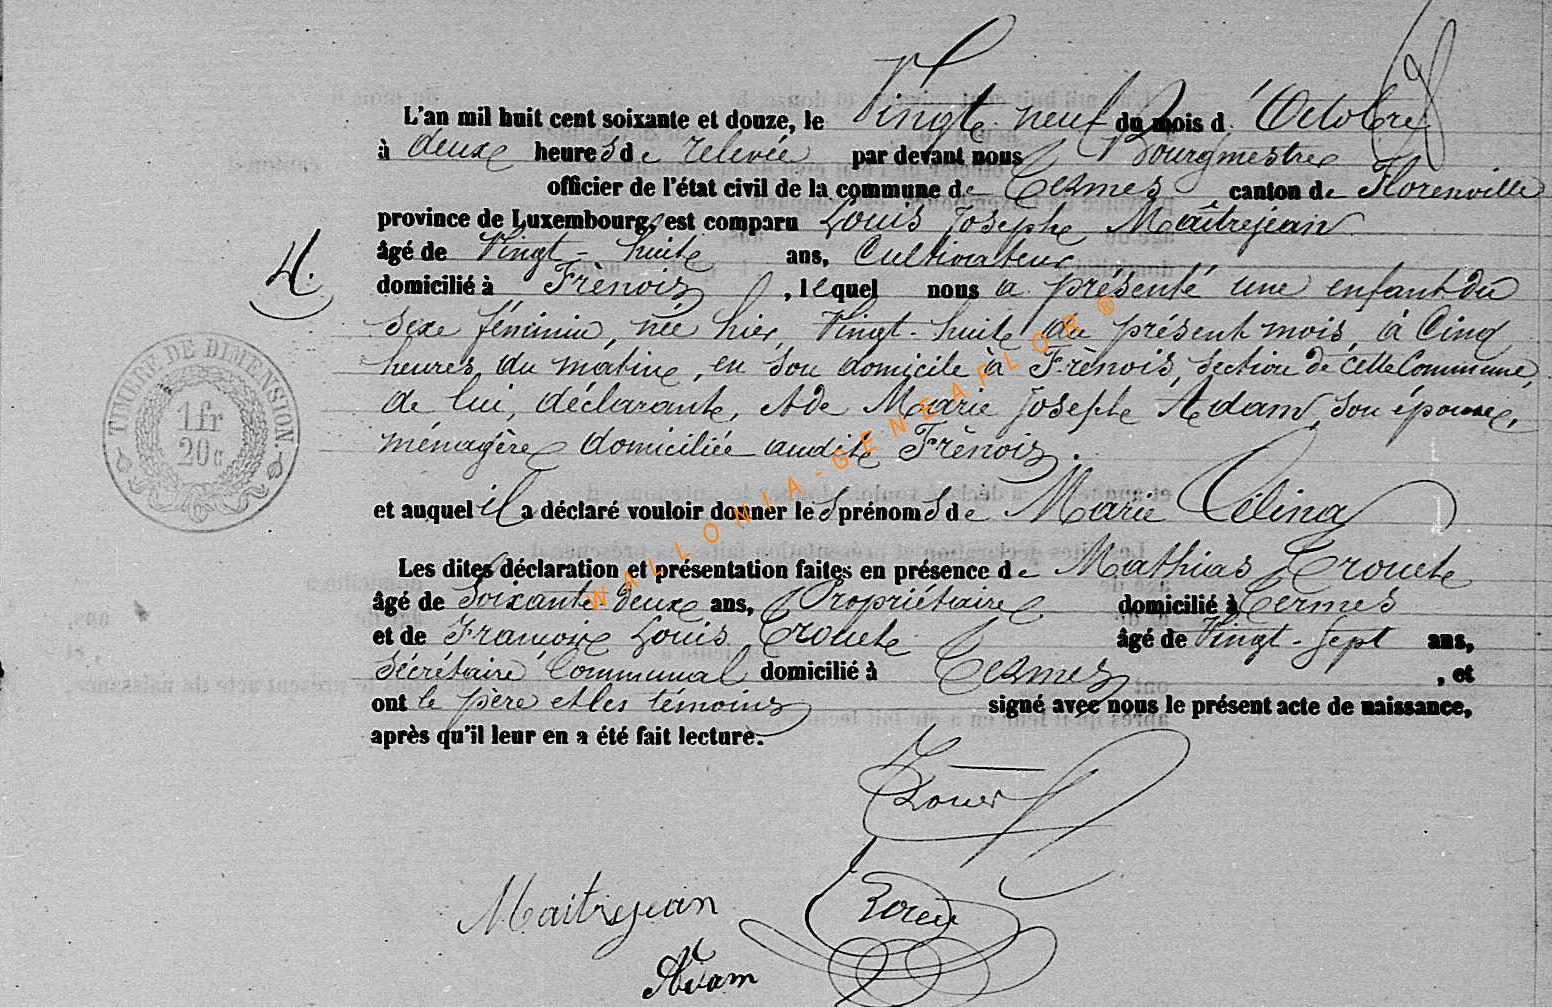 L'an mil huit cent soixante et douze, le Vingt neuf du mois d'Octobre
à deux heures de relevée par devant nous Bourgmestre
officier de l'état civil de la commune de Termes canton de Florenville
province de Luxembourg, est comparu Louis Joseph Maîtrejean
âgé de Vingt-huit ans, Cultivateur
4.
domicilié à Frènois, lequel nous a présenté une enfant du
sexe féminin, née hier, Vingt-huit du présent mois, à Cinq
heures du matin, en son domicile à Frènois, section de cette Commune,
de lui, déclarant, et de Marie Josephe Adam, son épouse,
ménagère domiciliée audit Frènois.
TIMBRE DE DIMENSION.
1 fr
20 c
et auquel il a déclaré vouloir donner les prénoms de Marie Célina
Les dites déclaration et présentation faites en présence de Mathias
âgé de Soixante deux ans, Propriétaire domicilié à Termes
et de François Louis âgé de Vingt-sept ans,
Sécrétaire Communal domicilié à Termes, et
ont le père et les témoins signé avec nous le présent acte de naissance,
après qu'il leur en a été fait lecture.
Maitrejean
Adam
WALLONIA-GENEAFLOR®